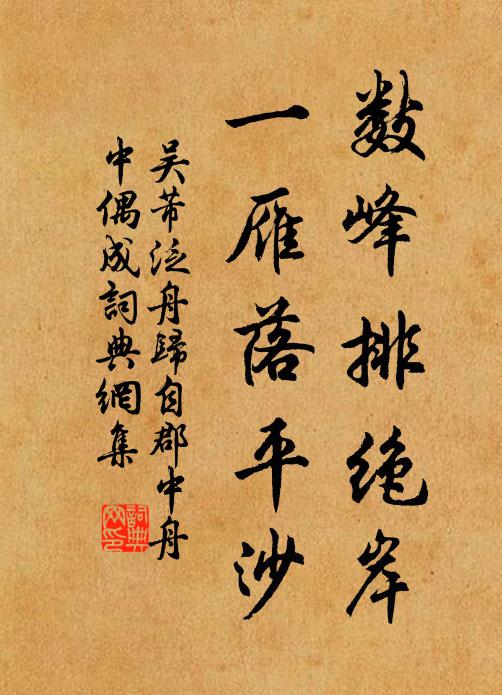 数峰排绝岸
一雁落平沙
吴芾泛舟歸自郡中舟
中偶成詞典網集
詞典网印